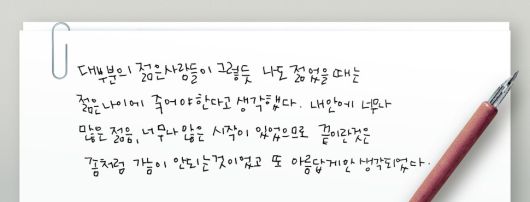 대부분의 젊은사람들이 그렇듯 나도 젊었을 때는
젊은나이에 죽어야한다고 생각했다. 내안에 너무나
많은 젊음, 너무나 많은 시작이 있었으므로 끝이란것은
좀처럼 가늠이 안되는것이었고 또 아름답게만 생각되었다.